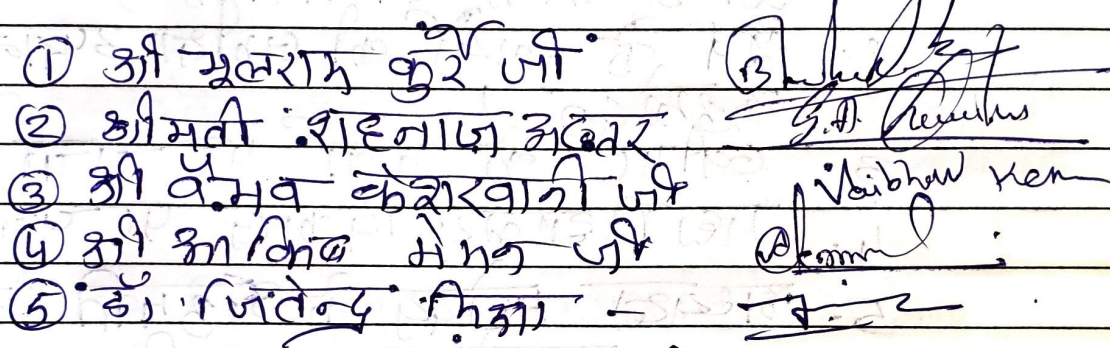 ① श्री मूलराम कुर्रे जी
② श्रीमती शहनाज अख्तर
③ श्री वैभव केशरवानी जी Vaibhav Kes
④ श्री आकिब मेमन जी
⑤ डॉ. जितेन्द्र मिश्रा -